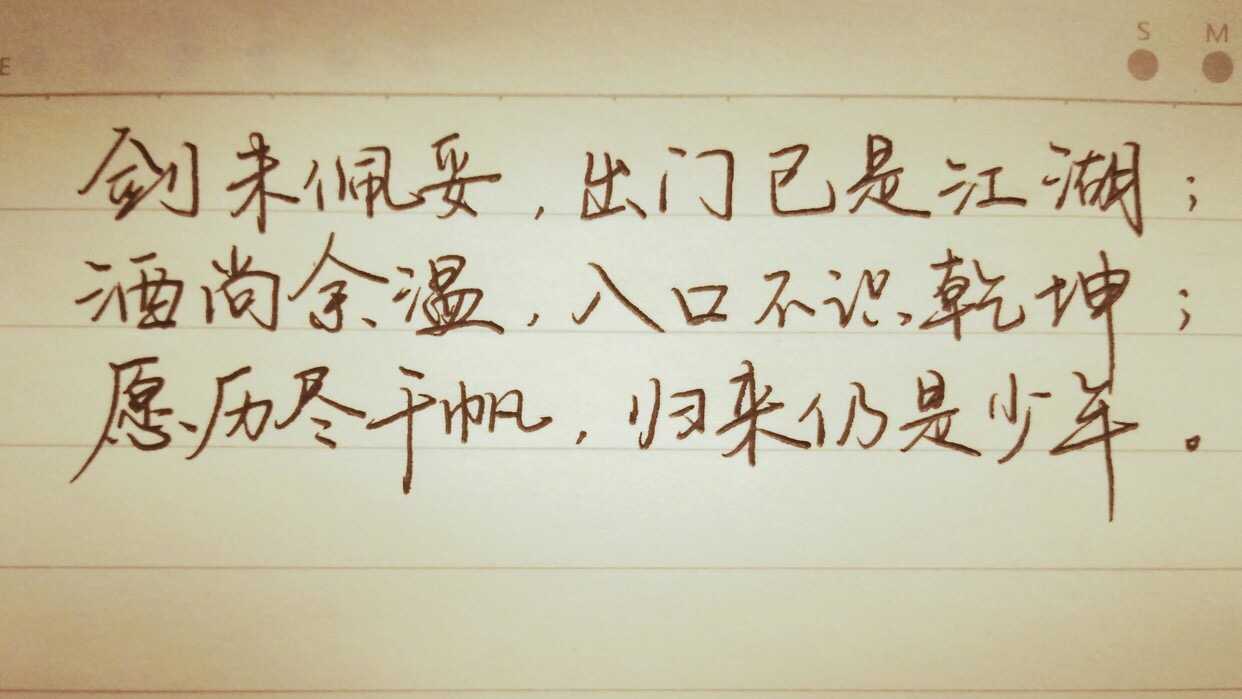 E
S M
剑未佩妥，出门已是江湖；
酒尚余温，入口不识乾坤；
愿历尽千帆，归来仍是少年。